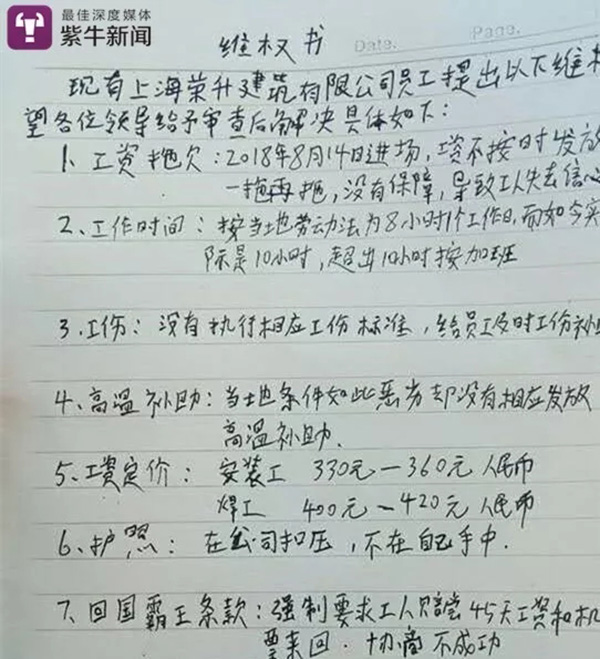 最佳深度媒体
紫牛新闻
维权书
Date.
Page.
现有上海荣升建筑有限公司员工提出以下维
望各位领导给予审查后解决具体如下:
1、工资拖欠:2018年8月14日进场,工资不按时发放
一拖再拖,没有保障,导致工人失去信心
2、工作时间:按当地劳动法为8小时1个工作日,而如今实
际是10小时,超出10小时按加班
3、工伤:没有执行相应工伤标准,给员工及时工伤补
4、高温补助:当地条件如此恶劣却没有相应发放
高温补助.
5、工资定价: 安装工 330元—360元人民币
焊工 400元—420元人民币
6、护照: 在公司扣压,不在自己手中.
7、回国霸王条款:强制要求工人赔偿45天工资和机
票来回.协商不成功